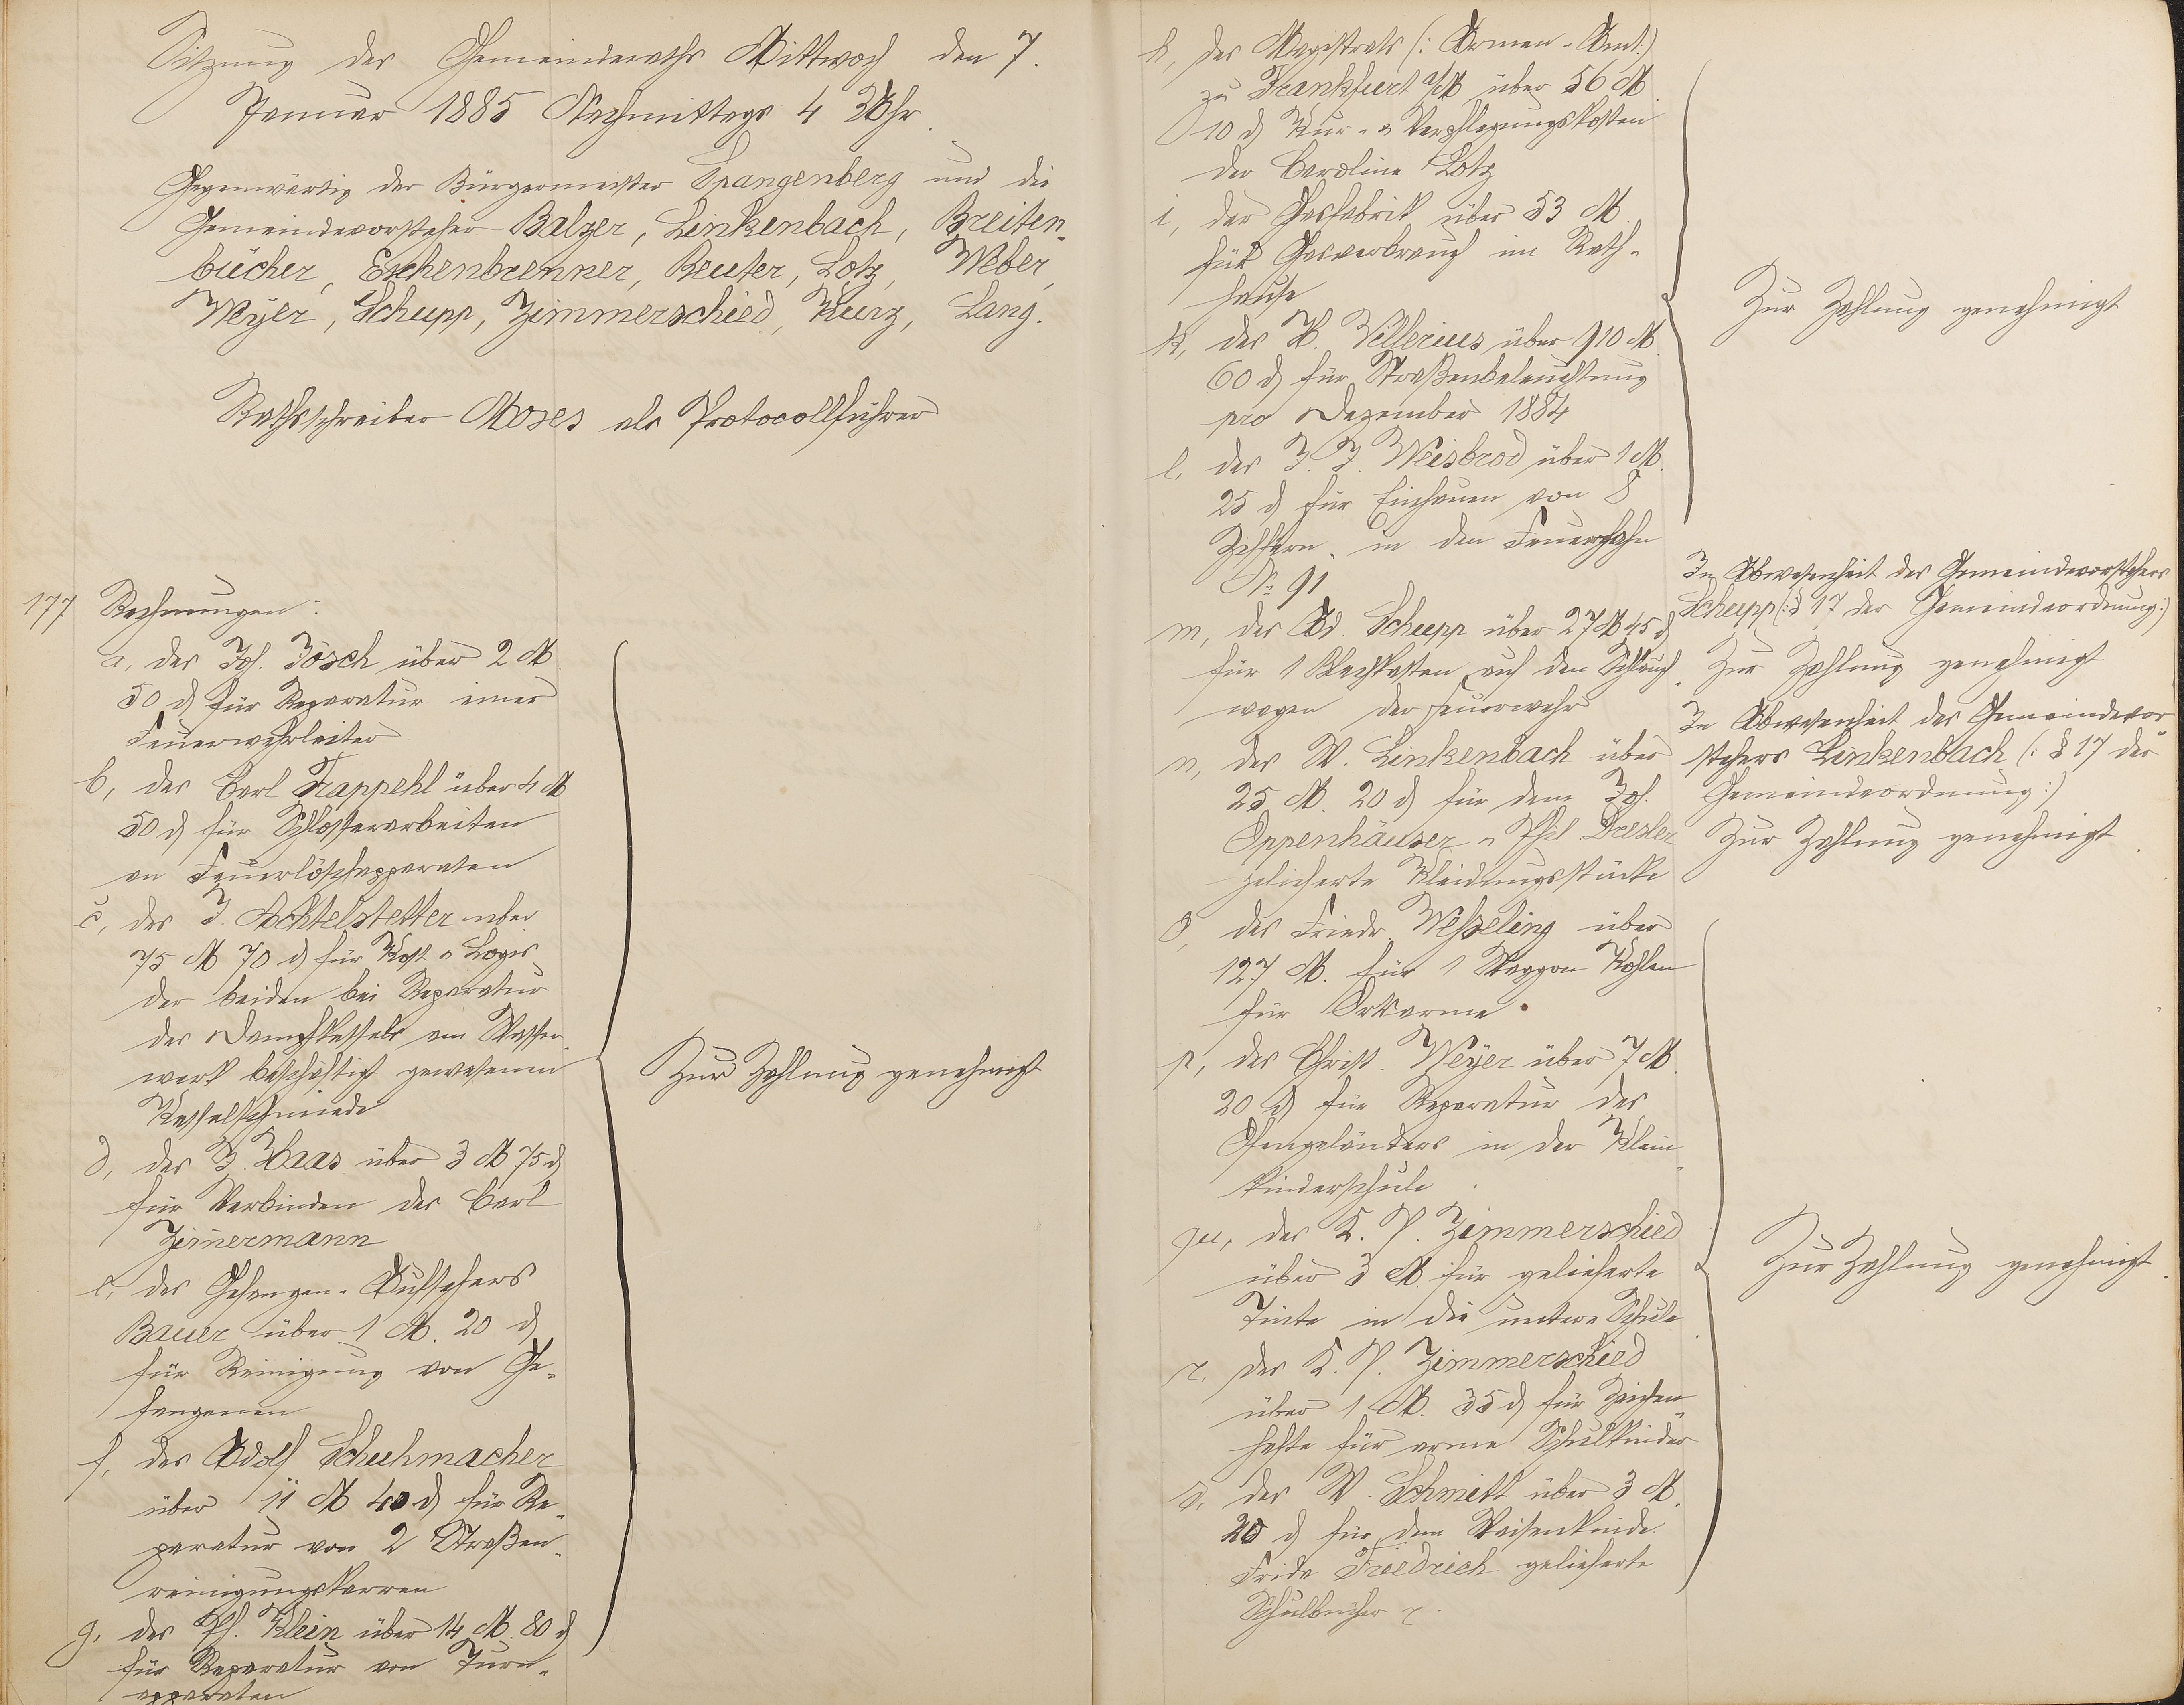 Sitzung des Gemeinderaths Mittwoch den 7.
Januar 1885 Nachmittags 4 Uhr.
Gegenwärtig der Bürgermeister Spangenberg und die
Gemeindevorsteher Balzer, Linkenbach, Breiten-
bücher, Eschenbrenner, Reuter, Lotz, Weber,
Meyer, Schupp, Zimmerschied, Kurz, Lang.
Rathsschreiber Moses als Protocollführer
177 Rechnungen:
a, des Joh. Jösch über 2 M
50 d für Reparatur einer
Feuerwehrleiter
b, des Carl Trappehl über 4 M
50 d für Schlosserarbeiten
an Feuerlöschapparaten
c, des J. Achtelstetter über
75 M 70 d für Kost u Logis
der beiden bei Reparatur
des Dampfkessels am Wasser-
werk beschäftigt gewesenen
Kesselschmiede
Zur Zahlung genehmigt
d, des B. Haas über 3 M 75 d
für Verbinden des Carl
Zimermann
e, des Gefangen-Aufsehers
Bauer über 1 M. 20 d
für Reinigung von Ge-
fangenen
f, des Adolf Schuhmacher
über 11 M 40 d für Re-
paratur von 2 Straßen-
reinigungskarren
g, des Ph. Klein über 14 M. 80 d
für Reparatur von Turn-
apparaten
h, des Magistrats (: Armen-Amt:)
zu Frankfurt a/M über 56 M
10 d Kur- u Verpflegungskosten
der Caroline Lotz
i, der Gasfabrik über 53 M.
für Gasverbrauch im Rath-
hause
Zur Zahlung genehmigt
k, des H. Vellerius über 910 M.
60 d für Straßenbeleuchtung
pro Dezember 1884
l, des J. J. Weisbrod über 1 M.
25 d für Einhauen von 8
Ziffern in den Feuerhahn
No 91
In Abwesenheit des Gemeindevorstehers
Schupp (: § 17 der Gemeindeordnung:)
m, des Ad. Schupp über 27 M 45 d
für 1 Blechkasten auf den Schlauch-
wagen der Feuerwehr
Zur Zahlung genehmigt
In Abwesenheit des Gemeindevor-
stehers Linkenbach (: § 17 der
Gemeindeordnung:)
n, des W. Linkenbach über
25 M. 20 d für dem Joh.
Oppenhäuser u Phil Dresler
gelieferte Kleidungsstücke
Zur Zahlung genehmigt
o, des Friedr. Weßeling über
127 M. für 1 Waggon Kohlen
für Ortsarme.
p, des Christ. Meyer über 7 M.
20 d für Reparatur des
Ofengeländers in der Klein-
kinderschule
qu, des K. P. Zimmerschied
über 3 M. für gelieferte
Tinte in die untere Schule
Zur Zahlung genehmigt.
r, des K. P. Zimmerschied
über 1 M. 35 d für Zeichen-
hefte für arme Schulkinder
s, des W. Schmitt über 3 M.
20 d für dem Waisenkinde
Frida Friedrich gelieferte
Schulbücher